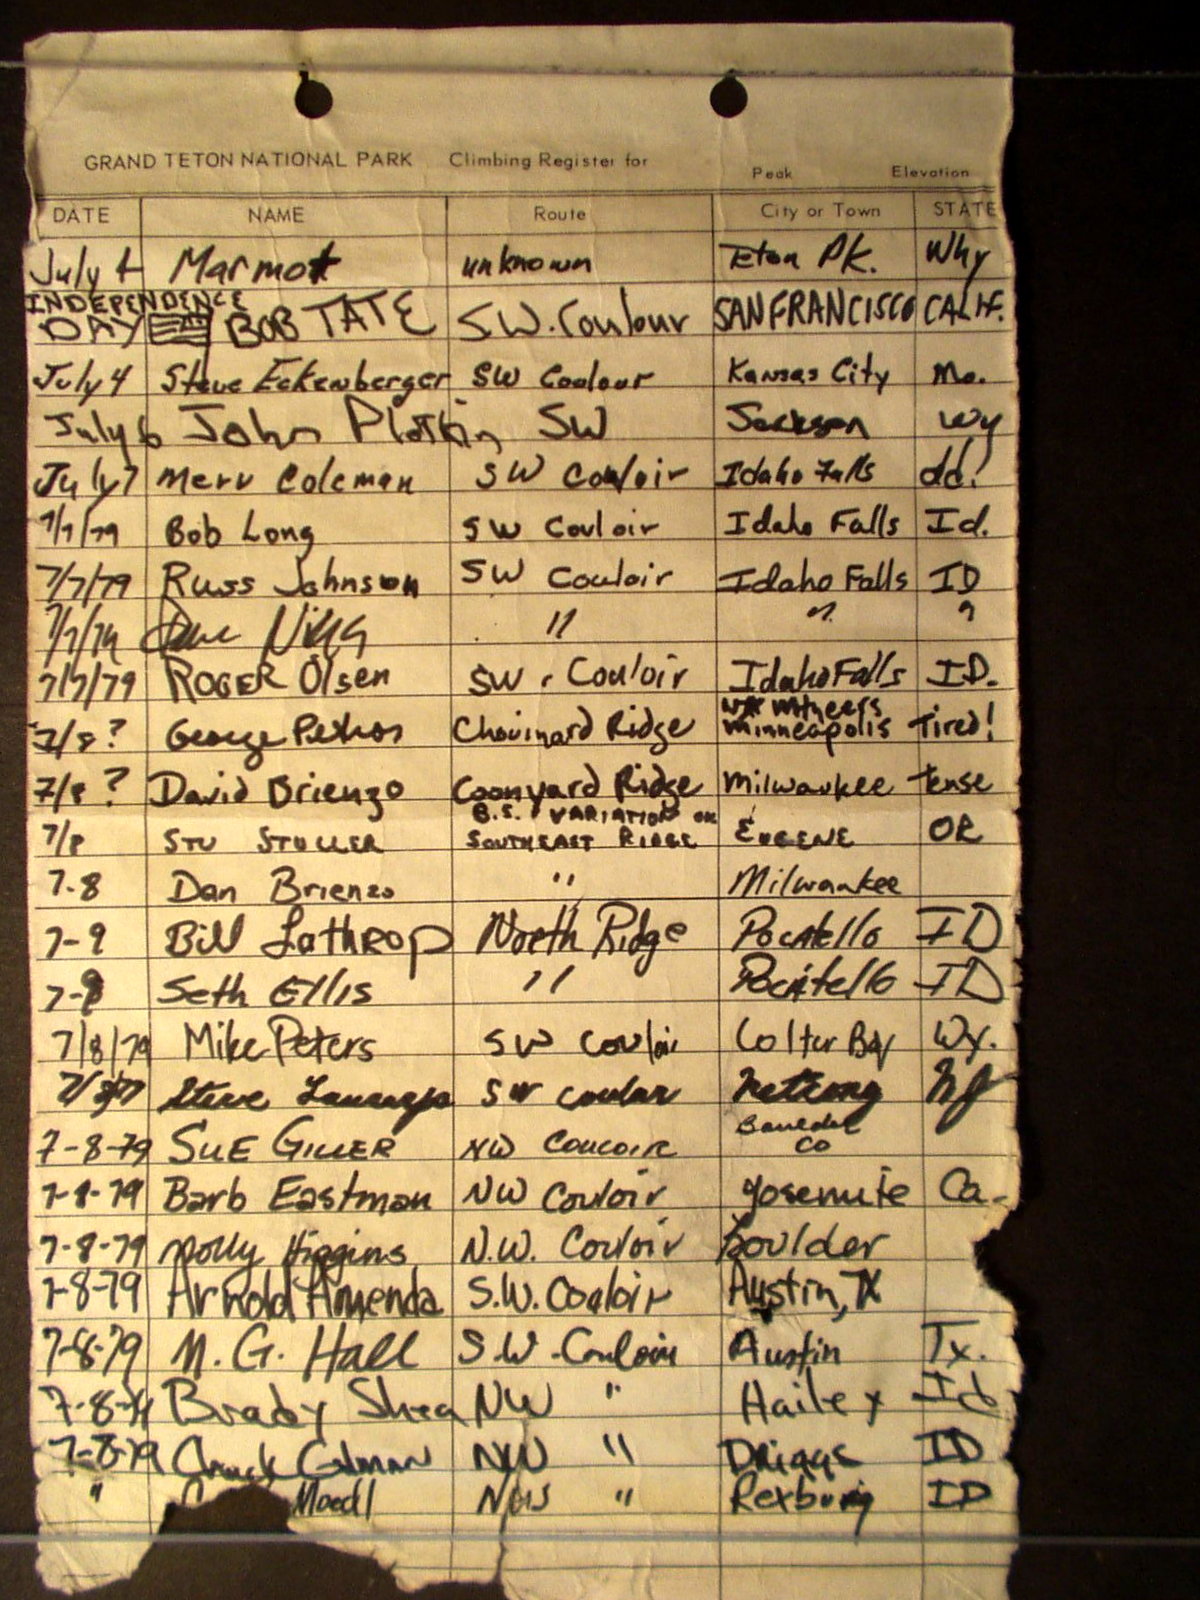 GRAND TETON NATIONAL PARK Climbing Register for Peak Elevation
DATE NAME Route City or Town STATE
July 4 Marmot unknown Teton Pk. Why
INDEPENDENCE
DAY BOB TATE S.W. Coulour SAN FRANCISCO CALIF.
July 4 Steve Eckenberger SW Coolour Kansas City Mo.
July 6 John Plotkin SW Jackson Wy
July 7 Merv Coleman SW Couloir Idaho Falls Id!
7/7/79 Bob Long SW Couloir Idaho Falls Id.
7/7/79 Russ Johnson SW Couloir Idaho Falls ID
7/7/79 " " "
7/7/79 ROGER Olsen SW. Couloir Idaho Falls ID.
7/8? George Petros Chouinard Ridge Minneapolis Tired!
7/8? David Brienzo Coonyard Ridge Milwaukee Tense
B.S. VARIATION ON
7/8 STU STULLER SOUTHEAST RIDGE EUGENE OR
7-8 Dan Brienzo " Milwaukee
7-9 Bill Lathrop North Ridge Pocatello ID
7-9 Seth Ellis " Pocatello ID
7/8/79 Mike Peters SW Couloir Colter Bay Wy.
Steve SW couloir NJ
7-8-79 SUE GILLER NW COULOIR Boulder
CO
7-8-79 Barb Eastman NW Couloir Yosemite Ca.
7-8-79 Molly Higgins N.W. Couloir Boulder
7-8-79 Arnold Amenda S.W. Couloir Austin, TX
7-8-79 M. G. Hall S.W. Couloir Austin Tx.
7-8-79 Brady Shea NW " Hailey Id
7-8-79 Chuck Colman NW " Driggs ID
" Moedl " Rexburg ID